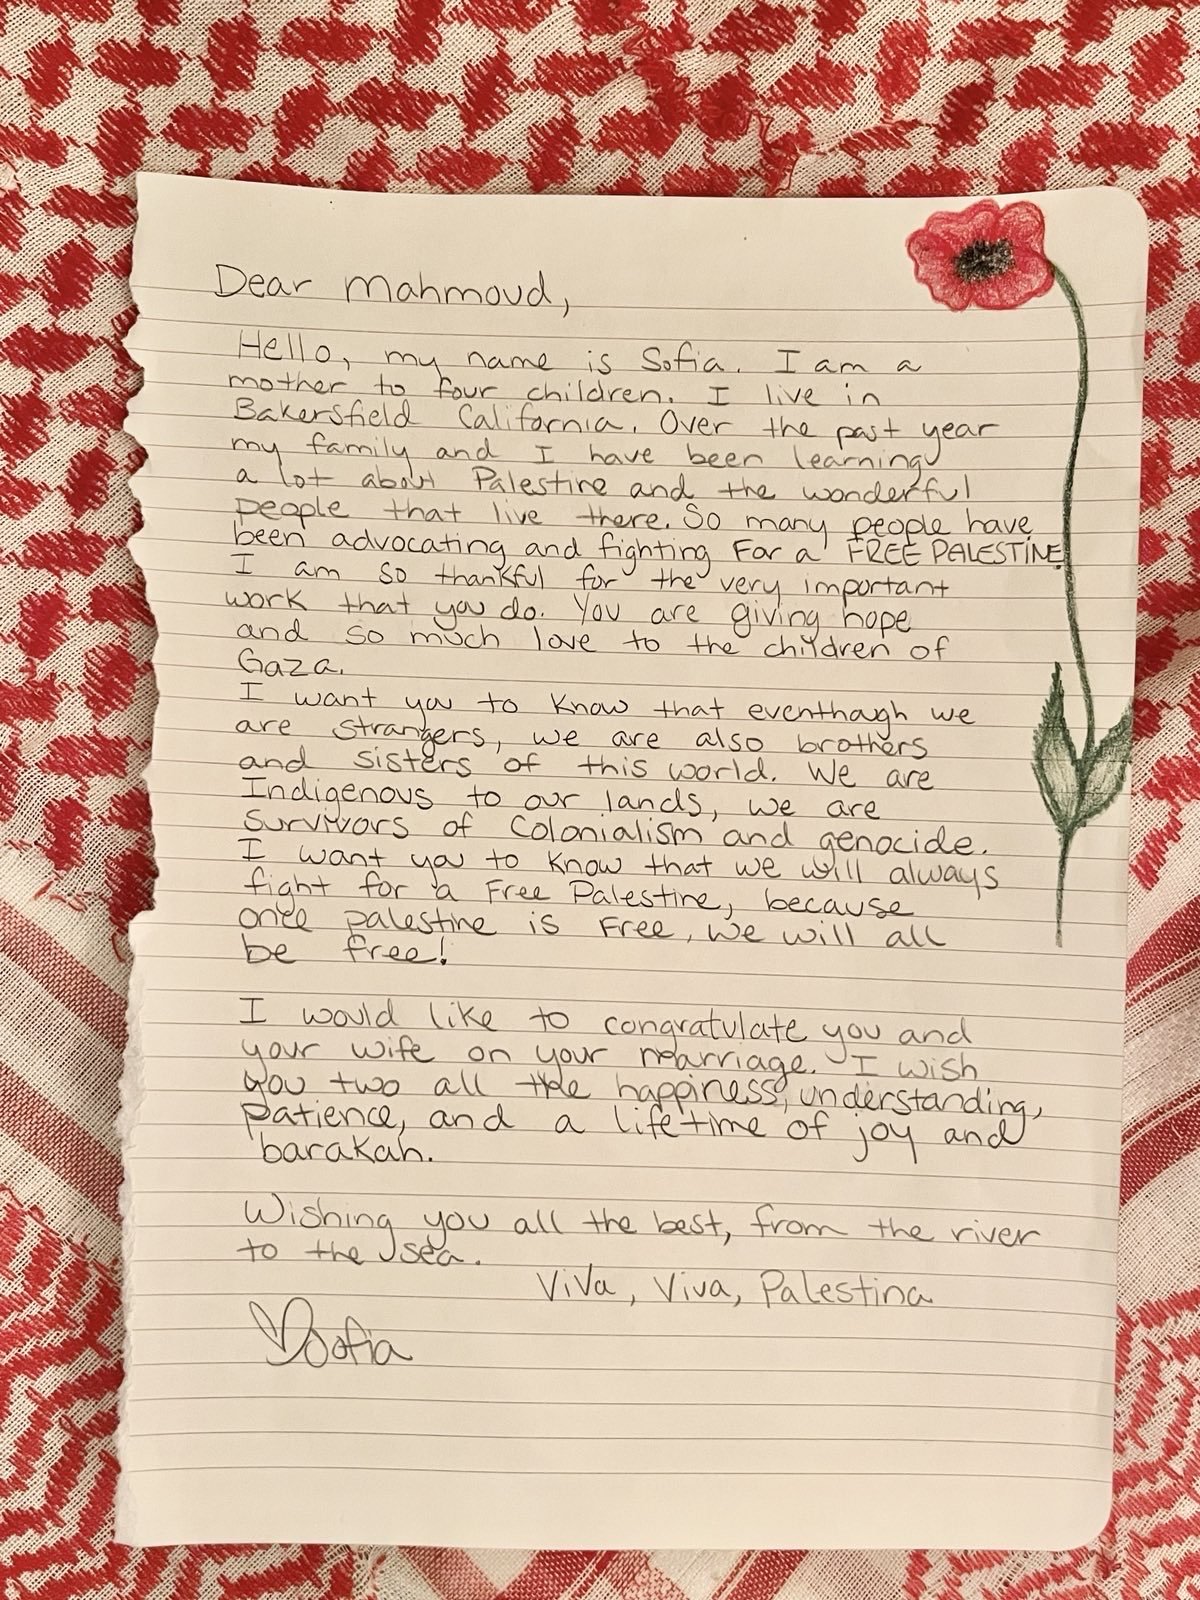 Dear Mahmoud,
Hello, my name is Sofia. I am a
mother to four children. I live in
Bakersfield California. Over the past year
my family and I have been learning
a lot about Palestine and the wonderful
people that live there. So many people have
been advocating and fighting For a FREE PALESTINE!
I am so thankful for the very important
work that you do. You are giving hope
and so much love to the children of
Gaza.
I want you to know that eventhough we
are strangers, we are also brothers
and sisters of this world. We are
Indigenous to our lands, we are
survivors of colonialism and genocide.
I want you to know that we will always
fight for a Free Palestine, because
once palestine is Free, we will all
be free!
I would like to congratulate you and
your wife on your marriage. I wish
you two all the happiness, understanding,
patience, and a lifetime of joy and
barakah.
Wishing you all the best, from the river
to the sea.
Viva, Viva, Palestina
Sofia